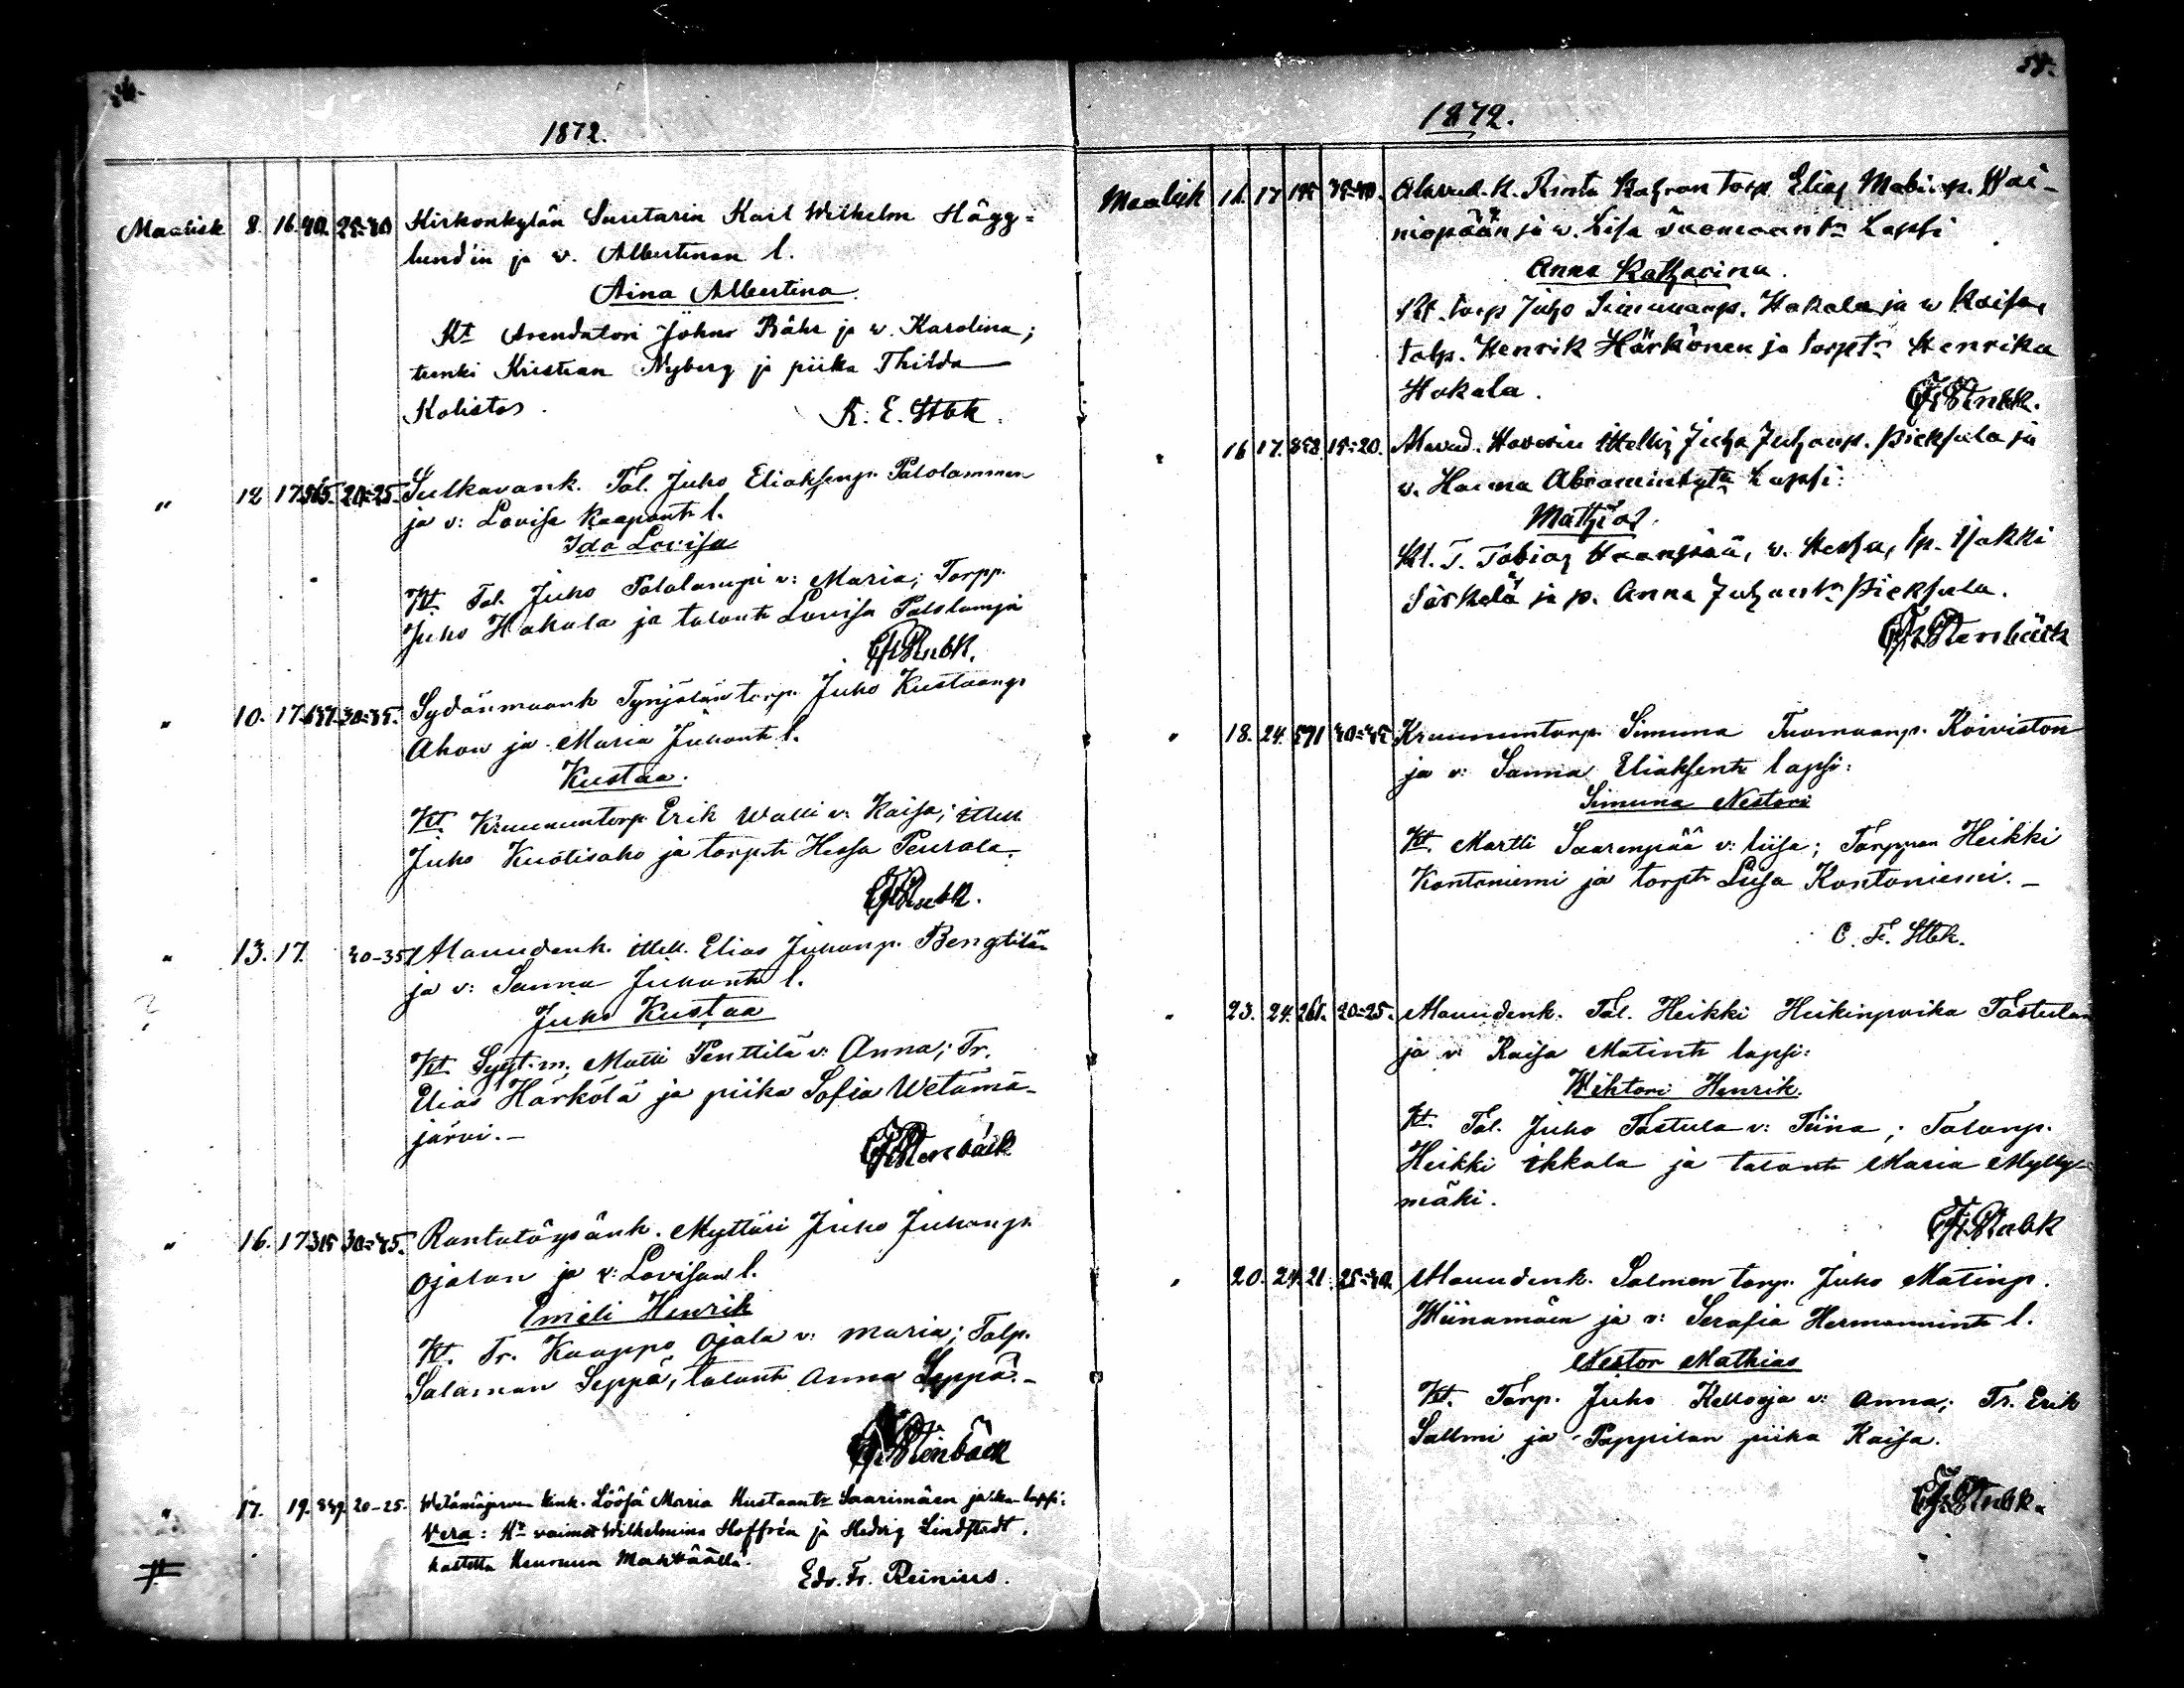 1872.
Maalisk 8. 16. 40. 25-30 Kirkonkylän Suutarin Karl Wilhelm Hägg=
lund'in ja w. Albertinan l.
Aina Albertina.
Kt Arendatori Johns Bähr ja w. Karolina;
renki Kristian Nyberg ja piika Thilda
Kolistos. K. E. Stbk.
" 12 17. 565. 20-25. Sulkavank. Tal. Juho Eliaksenp. Palolammen
ja v: Lovisa Kaapontr l.
Ida Lovisa
Kt. Tal. Juho Palolampi v: Maria; Torpp.
Juho Hakala ja talontr Lovisa Palolampi
C F Stenbk.
" 10. 17. 637. 30-35. Sydänmaank Tynjälän torp. Juho Kustaanp
Ahon ja Maria Juhontr l.
Kustaa.
Kt. Kruununtorp. Erik Walli v: Kaisa; itsell
Juho Kuotisaho ja torptr Hessa Peurala.
C F Stenbk.
" 13. 17. 30-35. Alavudenk. itsell. Elias Juhonp. Bengtilän
ja v: Sanna Juhontr l.
Juho Kustaa
Kt. Syyt.m. Matti Penttilä v: Anna; Tr.
Elias Härkölä ja piika Sofia Wetämä-
järvi.-
C F Stenbäck
" 16. 17. 315 30-35. Rantatöysänk. Mylläri Juho Juhonp.
Ojalan ja v: Lovisan l.
Emeli Henrik
Kt. Tr. Kaappo Ojala v: Maria; Talp.
Salamon Seppä, talontr Anna Seppä.-
C F Stenbäck
" 17. 19. 839. 20-25. Wetämäjärven kink. Löösä Maria Kustaantr Saarimäen lapsi:
Vera: Kt vaimot Wilhelmina Hoffrén ja Hedvig Lindstedt.
kastettu Keuruun
Edv. Fr. Reinius.
1872.
Maalisk 17 35-40. Alavud. k. Rinta torp Elias Matinp. Wai-
niopään ja w. Lisa Tuomaantr Lapsi
Anna Katharina.
Kt. torp Juho Simunanp. Hakala ja w Kaisa,
talp. Henrik Härkönen ja torptr Henrika
Hakala. C F Stenbk.
" 16 17. 858. 15-20. Alavud. Itsellis Juho Juhonp. Pieksula ja
v. Hanna Abramintytr Lapsi:
Mathias.
Kt. T. Tobias Haanpää, w. Hessa, tp. Jakki
Särkelä ja p. Anna Juhontr Pieksula.
C F Stenbäck
" 18. 24. 571 40-45 Kruununtorp. Simuna Tuomaanp. Koiviston
ja v: Sanna Eliaksentr lapsi:
Simuna Nestori
Kt. Martti Saarenpää v: Liisa; Torppan Heikki
Kontoniemi ja torptr Liisa Kontoniemi.-
C. F. Stbk.
" 23. 24. 261. 20-25. Alavudenk. Tal. Heikki Heikinpoika Tastulan
ja v: Kaisa Matintr lapsi:
Wihtori Henrik.
Kt. Tal. Juho Tastula v: Tiina; Talonp.
Heikki Ikkala ja talontr Maria Mylly-
mäki.
C F Stenbk
" 20. 24. 21. 25-30. Alavudenk. Salmen torp. Juho Matinp.
Wiinamäen ja v: Serafia Hermannintr l.
Nestor Mathias
Kt. Torp. Juho Kelloja v: Anna; Tr. Erik
Sallmi ja Pappilan piika Kaisa.
C F Stenbk.